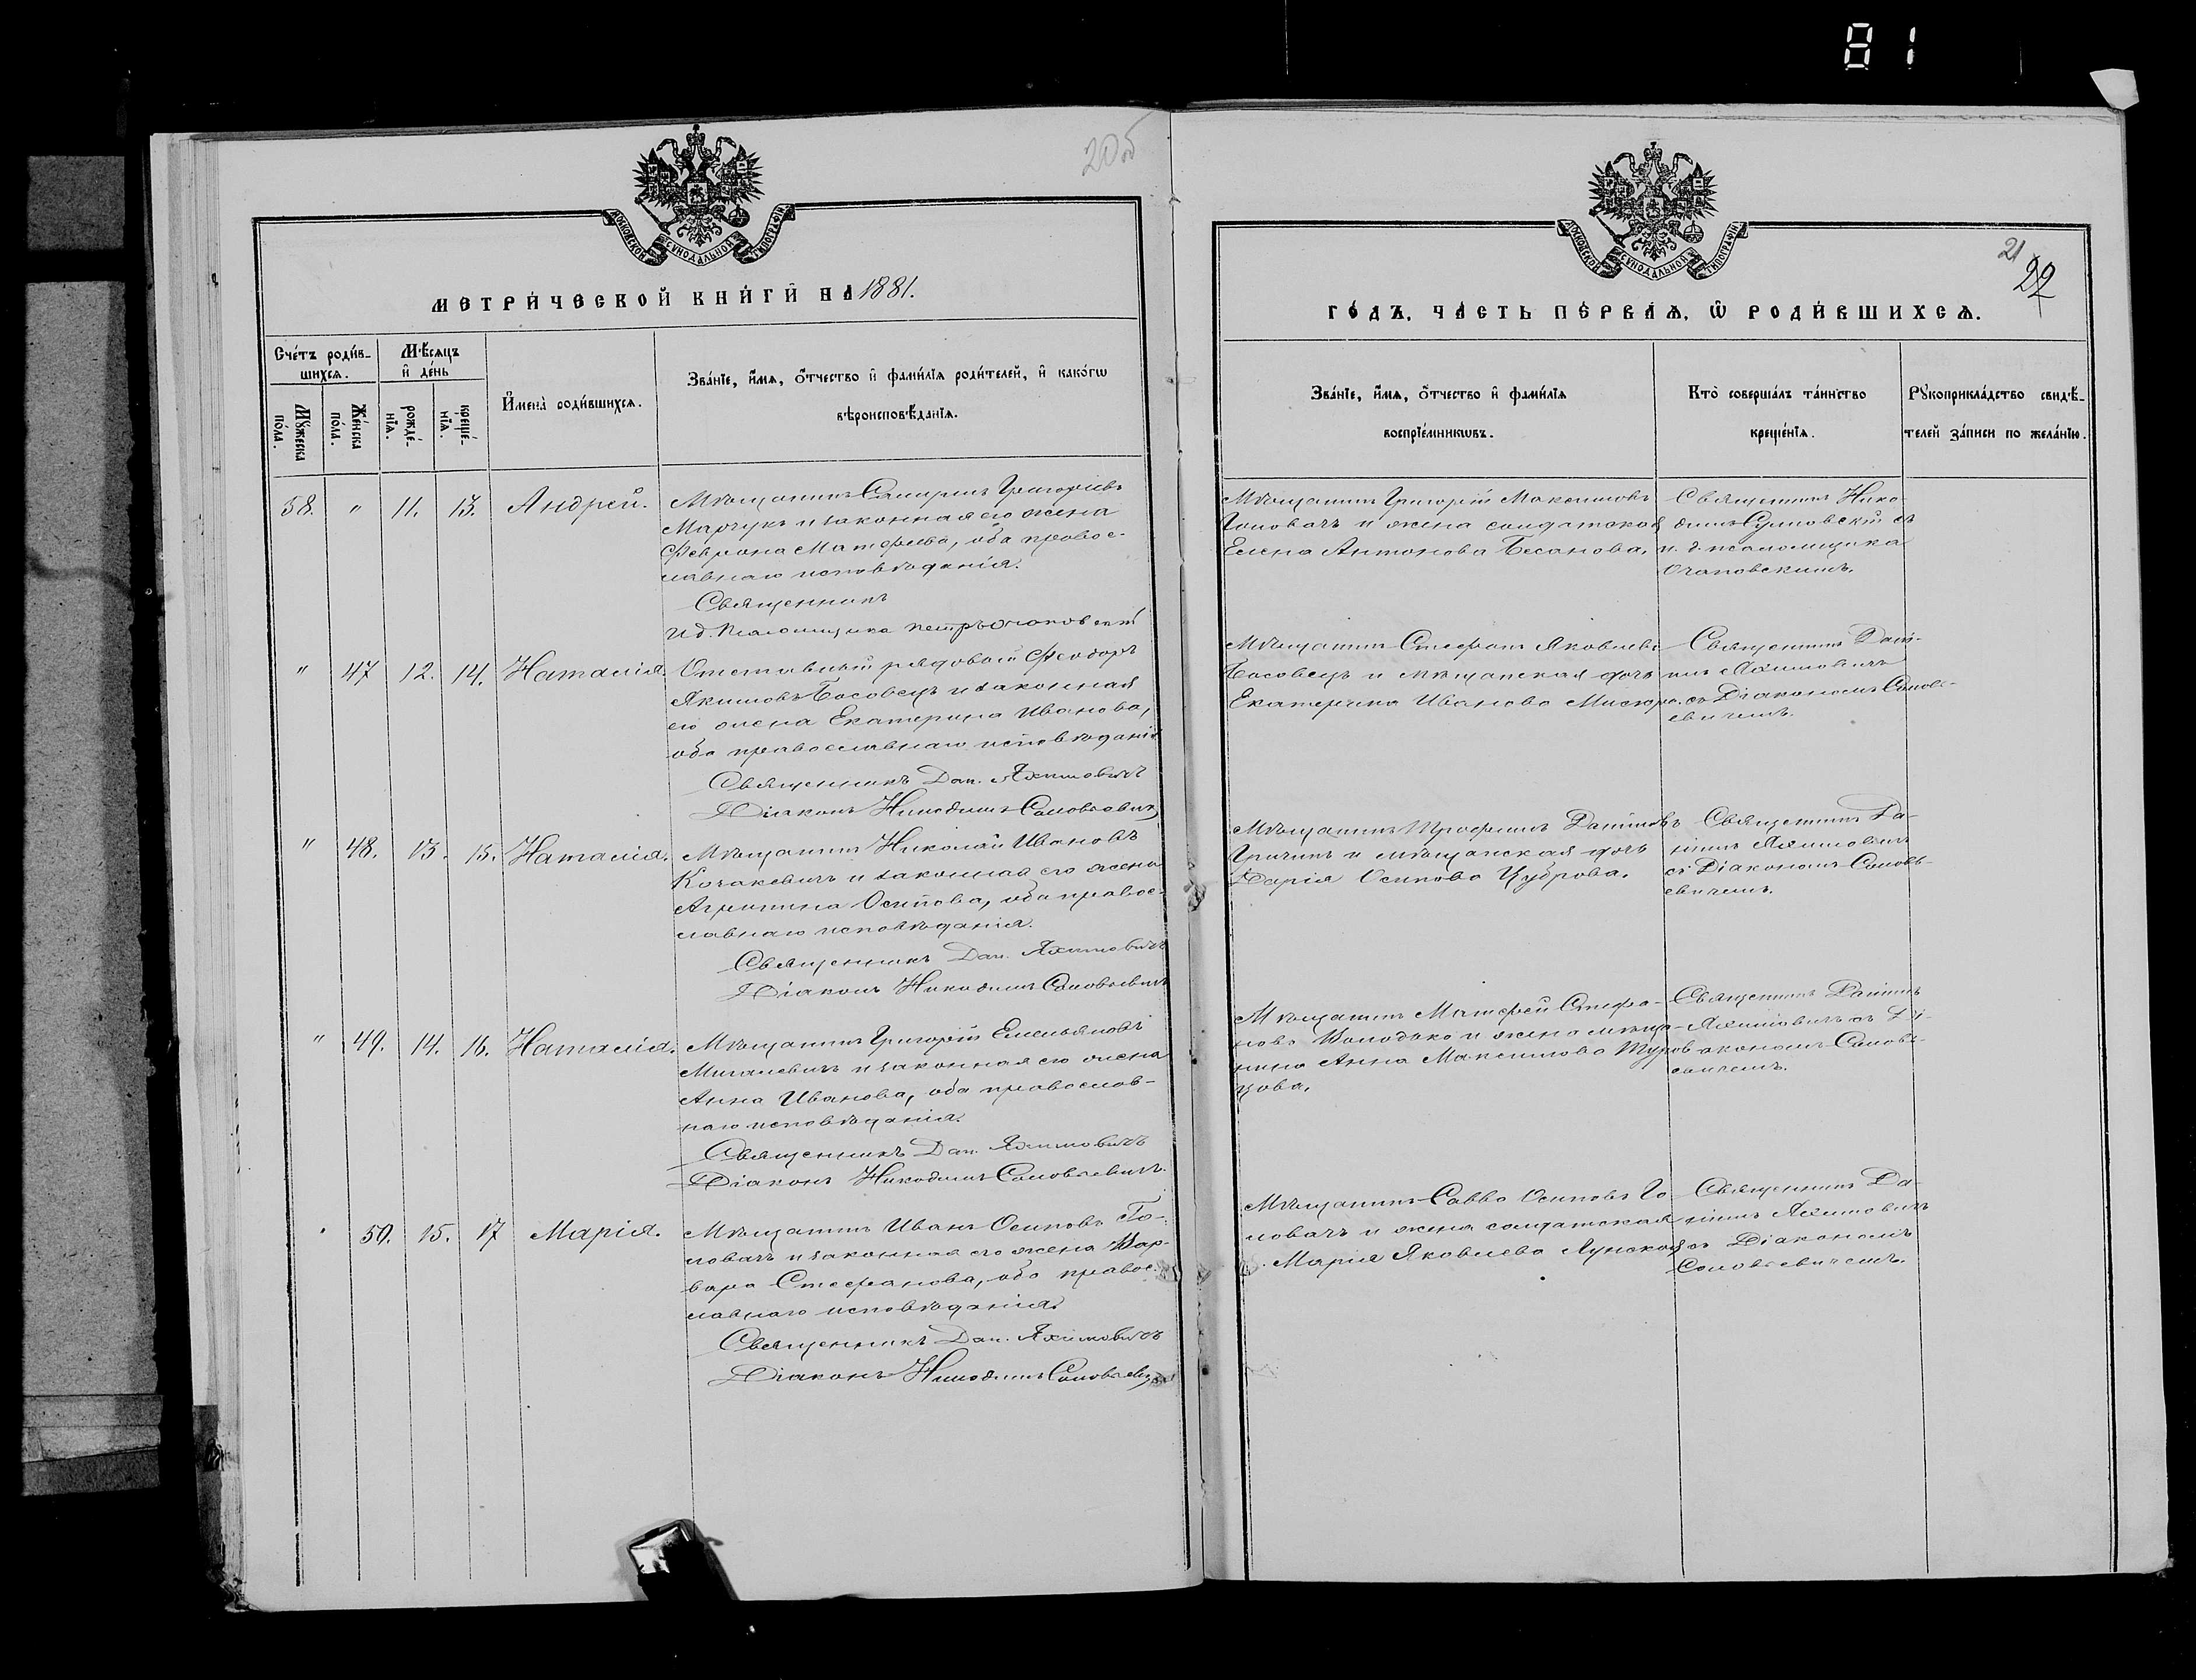 81
20об
МОСКОВСКОЙ СѴНОДАЛЬНОЙ ТИПОГРАФІИ
МЕТРИ́ЧЕСКОЙ КНИ́ГИ НА 1881.
Сче́тъ роди́в-
шихся.
Мѣ́сяцъ
и҆ де́нь
Мꙋ́жеска по́ла.
Же́нска по́ла.
рожде́-
нїѧ.
креще́-
нїѧ.
И҆мена̀ роди́вшихсѧ.
Зва́нїе, и҆́мѧ, ѻ҆́тчество и҆ фами́лїѧ роди́телей, и҆ како́гѡ
вѣроисповѣ́данїѧ.
58. " 11. 13. Андрей.
Мѣщанинъ Григоріевъ
Марчукъ и законная его жена
Феврона Матфіева, оба правос-
лавнаго исповѣданія.
Священникъ
И д. Псаломщика Петръ Очаповскій
" 47 12. 14. Наталія.
Отставный рядовой Феодоръ
Якимовъ Босовецъ и законная
его жена Екатерина Иванова,
оба православнаго исповѣданія
Священникъ Дан. Яхимовичъ
Діаконъ Никодимъ Соловьевичъ
" 48. 13. 15. Наталія.
Мѣщанинъ Николай Ивановъ
Козакевичъ и законная его жена
Агрипина Осипова, оба правос-
лавнаго исповѣданія.
Священникъ Дан. Яхимовичъ
Діаконъ Никодимъ Соловьевичъ
" 49. 14. 16. Наталія.
Мѣщанинъ Григорій Емельяновъ
Мигалевичъ и законная его жена
Анна Иванова, оба православ-
наго исповѣданія.
Священникъ Дан. Яхимовичъ
Діаконъ Никодимъ Соловьевичъ.
50. 15. 17 Марія.
Мѣщанинъ Иванъ Осиповъ Го-
ловачъ и законная его жена Вар-
вара Стефанова, оба правос-
лавнаго исповѣданія.
Священникъ Дан. Яхимовичъ
Діаконъ Никодимъ Соловьевичъ
МОСКОВСКОЙ СѴНОДАЛЬНОЙ ТИПОГРАФІИ
21
22
ГО́ДЪ, ЧА́СТЬ ПЕ́РВАѦ, Ѽ РОДИ́ВШИХСѦ.
Зва́нїе, и҆́мѧ, ѻ҆́тчество и҆ фами́лїѧ
воспрїе́мникѡвъ.
Кто̀ соверша́лъ та́инство
креще́нїѧ.
Рꙋкоприкла́дство свидѣ́-
телей за́писи по жела́нїю.
Мѣщанинъ Григорій Максимовъ
Головачъ и жена солдатская
Елена Антонова Бесанова.
Священникъ Нико-
димъ съ
и. д. псаломщика
Очаповскимъ.
Мѣщанинъ Стефанъ Яковлевъ
Босовецъ и мѣщанская дочь
Екатерина Иванова
Священникъ Дані-
илъ Яхимовичъ
съ Діакономъ Соловь-
евичемъ.
Мѣщанинъ Трофимъ Даниловъ
Гричинъ и мѣщанская дочь
Дарія Осипова Цуброва.
Священникъ Да-
ніилъ Яхимовичъ
съ Діакономъ Соловь-
евичемъ.
Мѣщанинъ Матфей Стефа-
новъ Володько и жена мѣща-
нина Анна Максимова Туров-
цова.
Священникъ Даніилъ
Яхимовичъ съ Ді-
акономъ Соловь-
евичемъ.
Мѣщанинъ Савва Осиповъ Го-
ловачъ и жена солдатская
Марія Яковлева Лунская
Священникъ Да-
ніилъ Яхимовичъ
съ Діакономъ
Соловьевичемъ.